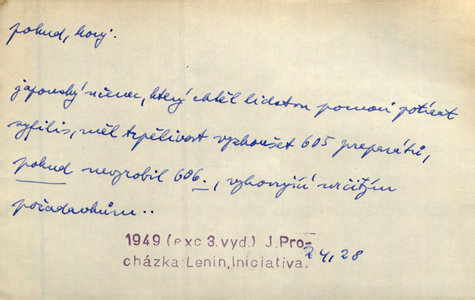 pokud, konj.
japonský učenec, který chtěl lidstvu pomoci potírat
syfilis, měl trpělivost vyzkoušet 605 preparátů,
pokud nevyrobil 606., vyhovující určitým
požadavkům..
1949 (exc.3.vyd.) J.Pro-
cházka:Lenin,Iniciativa.
24, 28